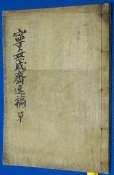 寧無成齋遺稿 草